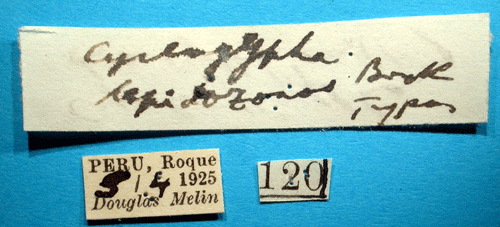 Cycloglypha
lepidozonos Bock
Typus
PERU, Roque
5/4 1925
Douglas Melin
120